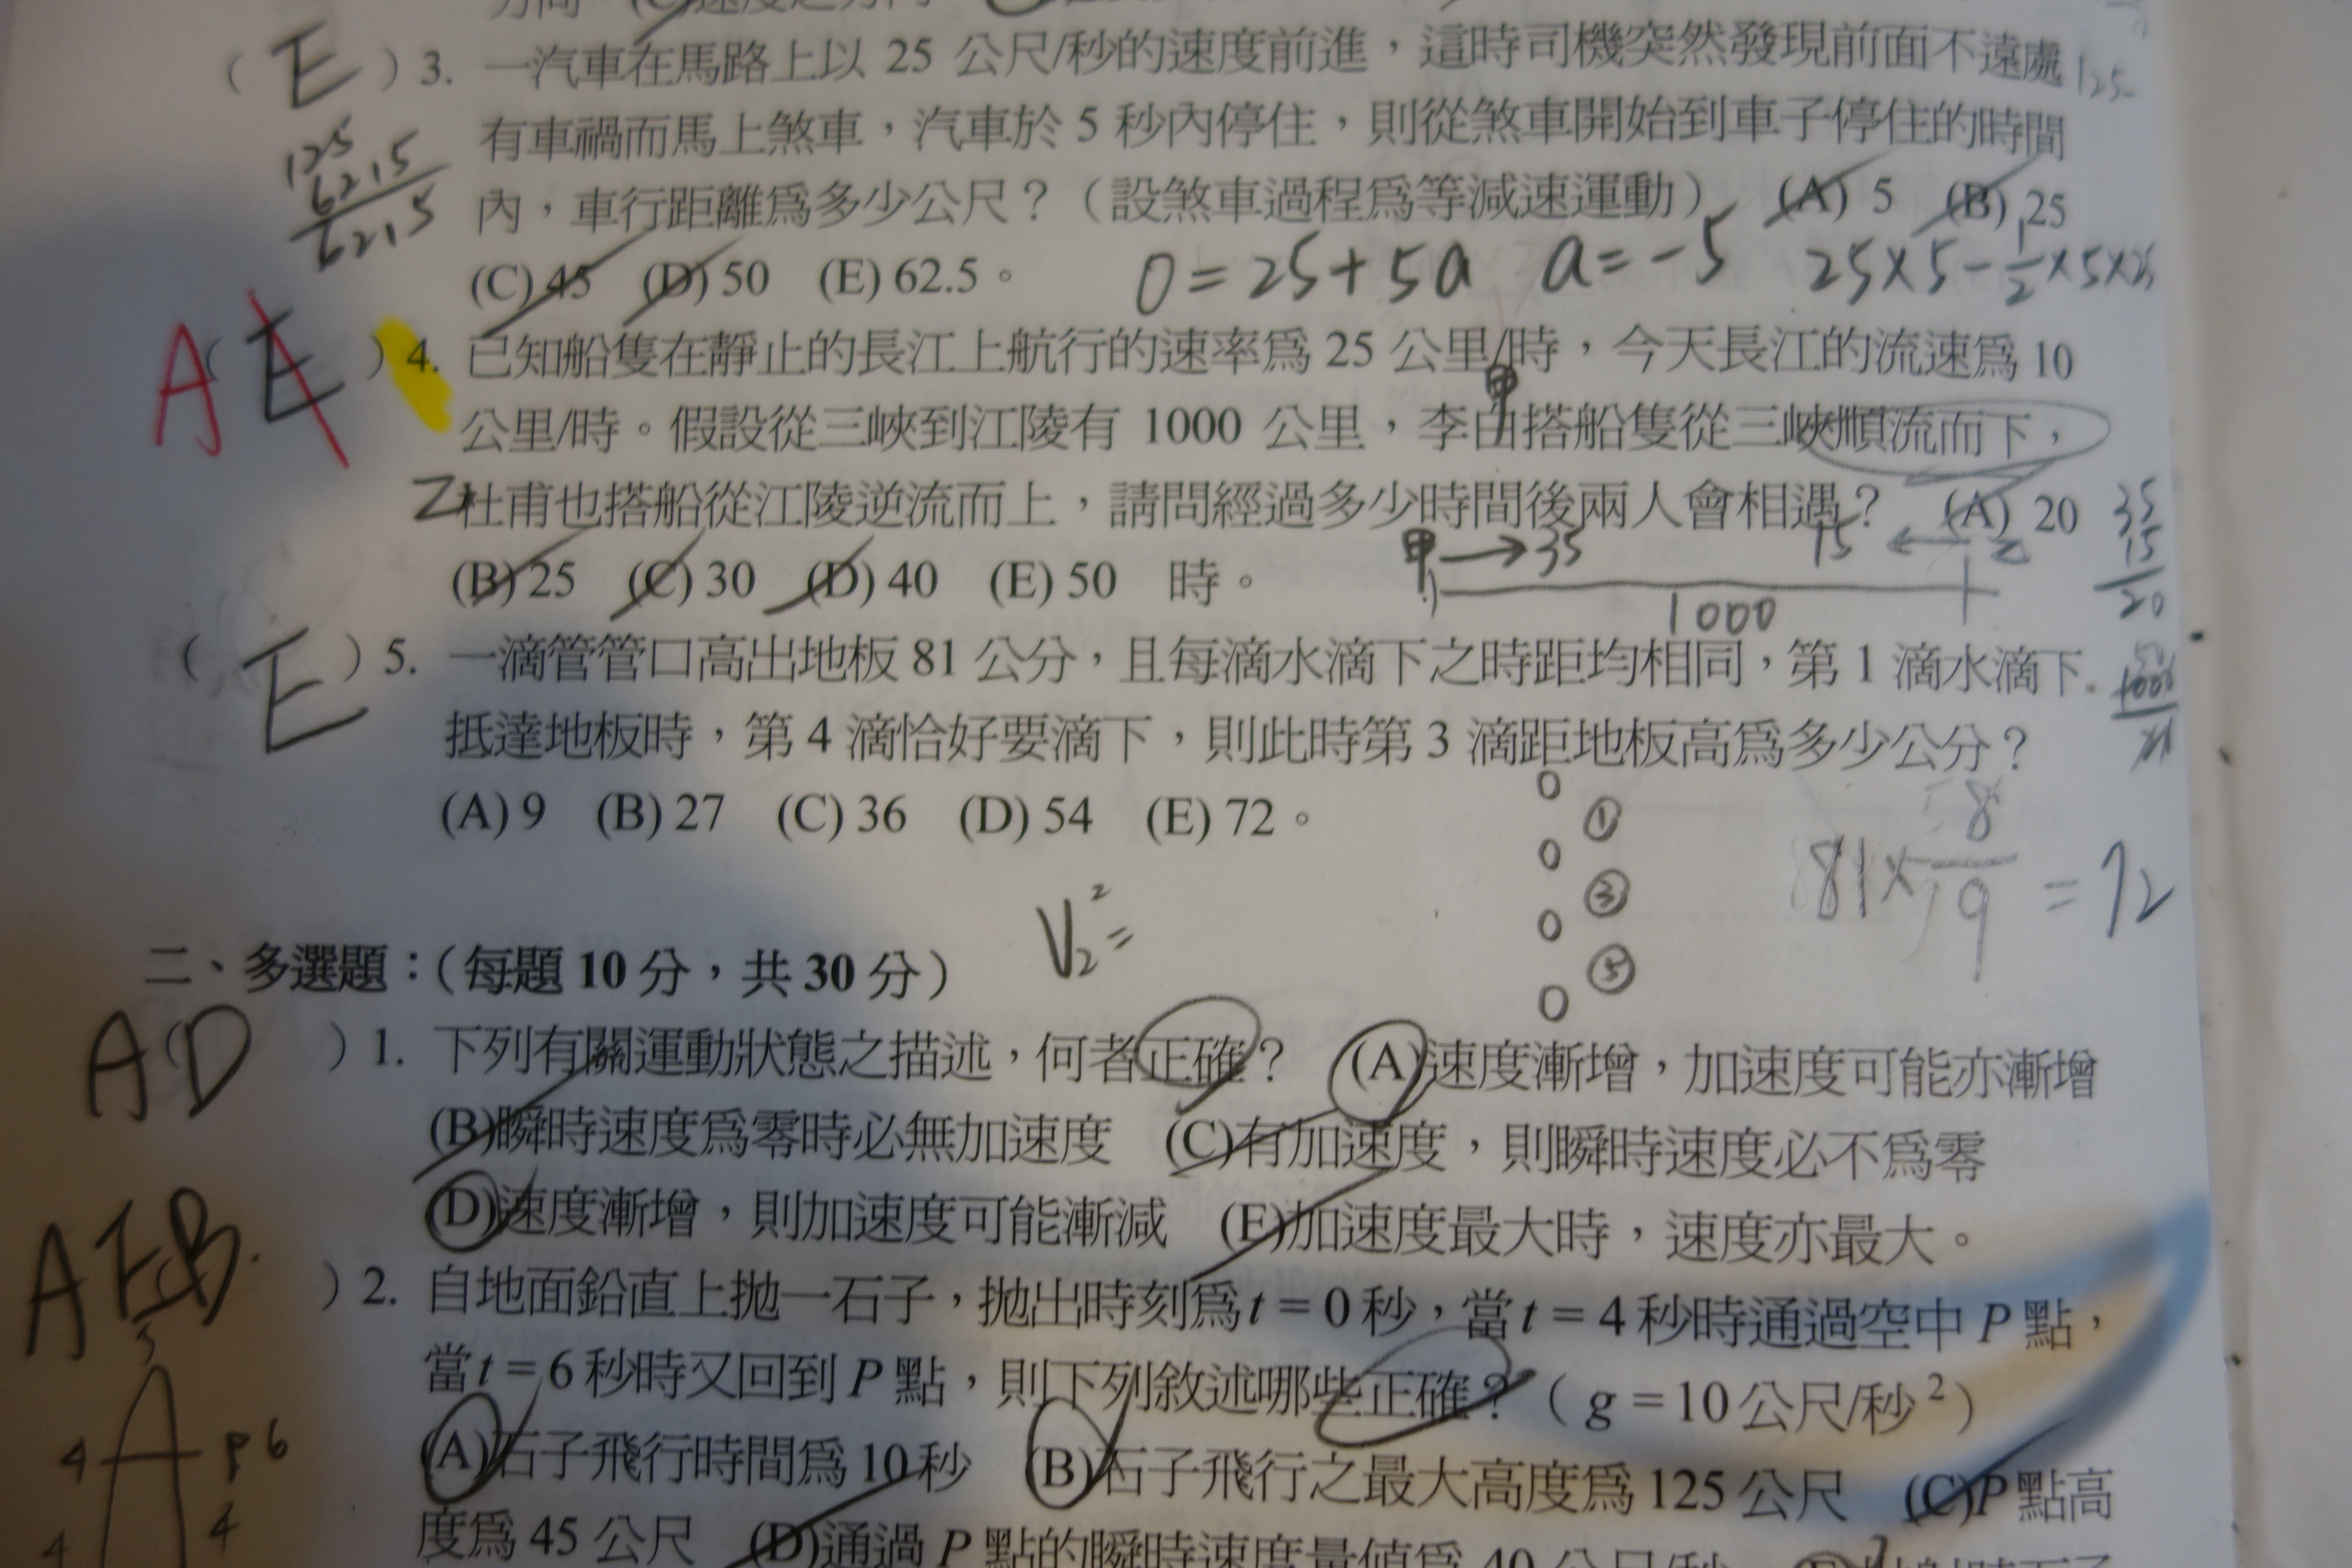 ( E ) 3. 一汽車在馬路上以 25 公尺/秒的速度前進，這時司機突然發現前面不遠處
125-
有車禍而馬上煞車，汽車於 5 秒內停住，則從煞車開始到車子停住的時間
125
62.5
62.5
內，車行距離為多少公尺？（設煞車過程為等減速運動） (A) 5 (B) 25
(C) 45 (D) 50 (E) 62.5。
0=25+5a a=-5 25×5-1/2×5×25
A ( E ) 4. 已知船隻在靜止的長江上航行的速率為 25 公里/時，今天長江的流速為 10
甲
公里/時。假設從三峽到江陵有 1000 公里，李白搭船隻從三峽順流而下，
乙 杜甫也搭船從江陵逆流而上，請問經過多少時間後兩人會相遇？ (A) 20
(B) 25 (C) 30 (D) 40 (E) 50 時。
甲→35 15←乙
1000
35
15
20
( E ) 5. 一滴管管口高出地板 81 公分，且每滴水滴下之時距均相同，第 1 滴水滴下
抵達地板時，第 4 滴恰好要滴下，則此時第 3 滴距地板高為多少公分？
(A) 9 (B) 27 (C) 36 (D) 54 (E) 72。
① ③ ⑤
81×8/9=72
V₂²=
二、多選題：（每題 10 分，共 30 分）
AD ) 1. 下列有關運動狀態之描述，何者正確？ (A)速度漸增，加速度可能亦漸增
(B)瞬時速度為零時必無加速度 (C)有加速度，則瞬時速度必不為零
(D)速度漸增，則加速度可能漸減 (E)加速度最大時，速度亦最大。
AEB ) 2. 自地面鉛直上拋一石子，拋出時刻為 t = 0 秒，當 t = 4 秒時通過空中 P 點，
當 t = 6 秒時又回到 P 點，則下列敘述哪些正確？（ g = 10 公尺/秒²）
(A)石子飛行時間為 10 秒 (B)石子飛行之最大高度為 125 公尺 (C)P 點高
5
4 P 6
4 4
度為 45 公尺 (D)通過 P 點的瞬時速度量值為 40 公尺/秒